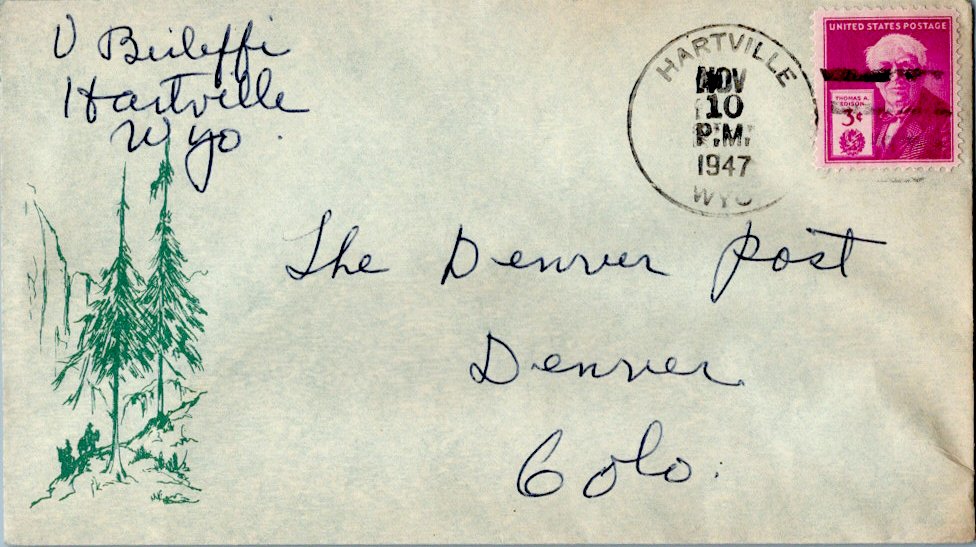 V Beileffi
Hartville
Wyo.
HARTVILLE
NOV
10
P.M.
1947
WYO
UNITED STATES POSTAGE
THOMAS A.
EDISON
3¢
The Denver Post
Denver
Colo.